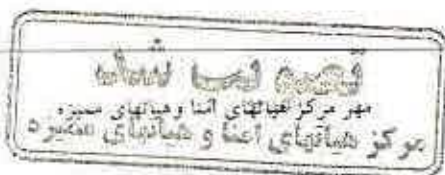 تصویب شد
مهر مرکز هیاتهای امنا و هیاتهای ممیزه
مرکز هیأتهای امنا و هیأتهای ممیزه